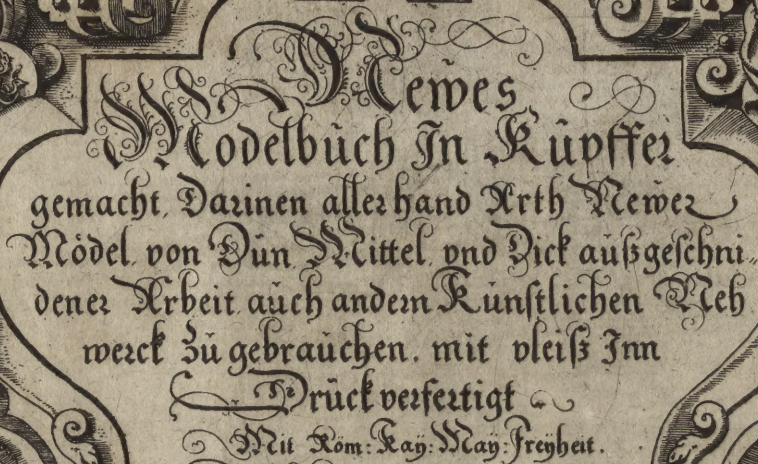 Newes
Modelbuch In Kupffer
gemacht, Darinen allerhand Arth Newer
Mödel von Dün Mittel vnd Dick außgeschni„
dener Arbeit auch andern Künstlichen Neh
werck zu gebrauchen. mit vleiß Inn
Druck verfertigt
Mit Röm: Kay: May: Freyheit.